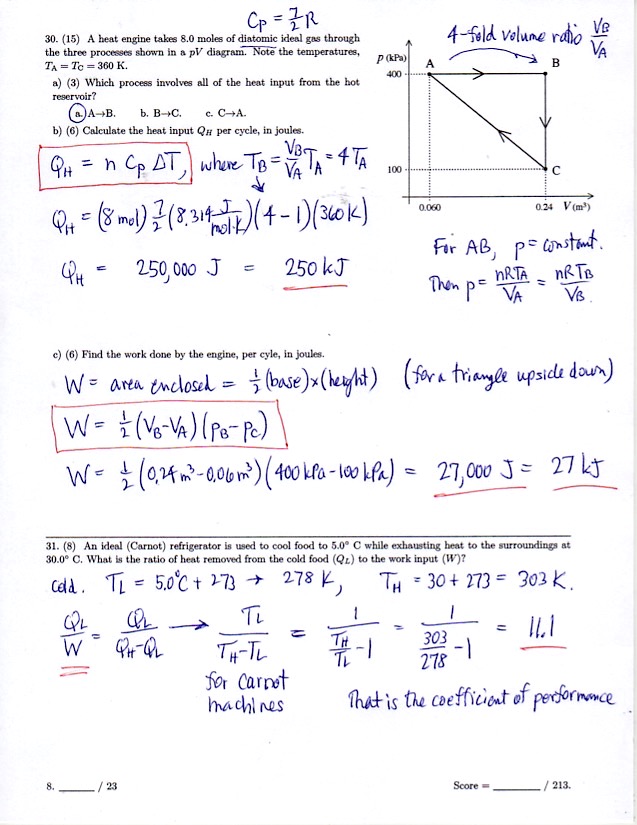 Cp = 7/2 R
30. (15) A heat engine takes 8.0 moles of diatomic ideal gas through
the three processes shown in a pV diagram. Note the temperatures,
T_A = T_C = 360 K.
a) (3) Which process involves all of the heat input from the hot
reservoir?
a. A→B. b. B→C. c. C→A.
b) (6) Calculate the heat input Q_H per cycle, in joules.
Q_H = n C_p ΔT, where T_B = V_B/V_A T_A = 4 T_A
Q_H = (8 mol) 7/2 (8.314 J/mol·K)(4 - 1)(360 K)
Q_H = 250,000 J = 250 kJ
4-fold volume ratio V_B/V_A
p (kPa)
A
B
400
100
C
0.060
0.24
V(m³)
For AB, p = constant.
Then p = nRT_A/V_A = nRT_B/V_B.
c) (6) Find the work done by the engine, per cyle, in joules.
W = area enclosed = 1/2 (base)×(height) (for a triangle upside down)
W = 1/2 (V_B-V_A)(p_B-p_C)
W = 1/2 (0.24 m³-0.06 m³)(400 kPa-100 kPa) = 27,000 J = 27 kJ
31. (8) An ideal (Carnot) refrigerator is used to cool food to 5.0° C while exhausting heat to the surroundings at
30.0° C. What is the ratio of heat removed from the cold food (Q_L) to the work input (W)?
Cold. T_L = 5.0°C + 273 → 278 K, T_H = 30 + 273 = 303 K.
Q_L/W = Q_L/(Q_H-Q_L) → T_L/(T_H-T_L) = 1/(T_H/T_L - 1) = 1/(303/278 - 1) = 11.1
for Carnot
machines
That is the coefficient of performance
8. ______ / 23
Score = ________ / 213.